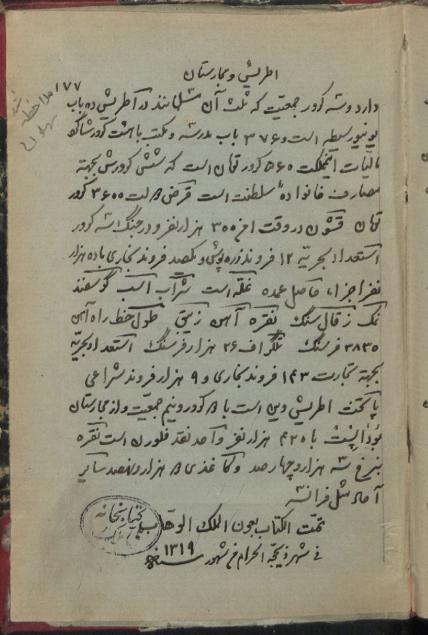 ۱۷۷
ملاحظه شد
اطریش و مجارستان
دارد و سه کرور جمعیت که ثلث آن مسلمانند در اطریش ده باب
یونیورسیطه است و ۳۷۶ باب مدرسه و مکتب با هشت کرور شاگرد
مالیات مملکت ۵۶۰ کرور تومان است که شش کرورش بجهته
مصارف خانواده سلطنت است قرض دولت ۳۶۰۰ کرور
تومان قشون در وقت امن ۳۰۰ هزار نفر و در جنگ سه کرور
استعداد بحریّه ۱۲ فروند زره پوش و یکصد فروند بخاری با ده هزار
نفر اجزاء، حاصل عمده غلّه است شراب اسب گوسفند
نمک زغال سنگ نقره آهن زیبق طول خط راه آهن
۳۸۳۵ فرسنگ تلگراف ۲۶ هزار فرسنگ استعداد بحریّه
بجهته تجارت ۱۴۳ فروند بخاری و ۹ هزار فروند شراعی
پایتخت اطریش وین است با کرور و نیم جمعیت و از مجارستان
بوداپست با ۴۲۰ هزار نفر واحد نقد فلورن است نقره
بنرخ سه هزار و چهار صد و کاغذی هزار و نهصد سایر
مثل فرانسه
تمّت الکتاب بعون الملک الوهّاب
فی شهر ذیحجّة الحرام من شهور سنه ۱۳۱۹
کتابخانه